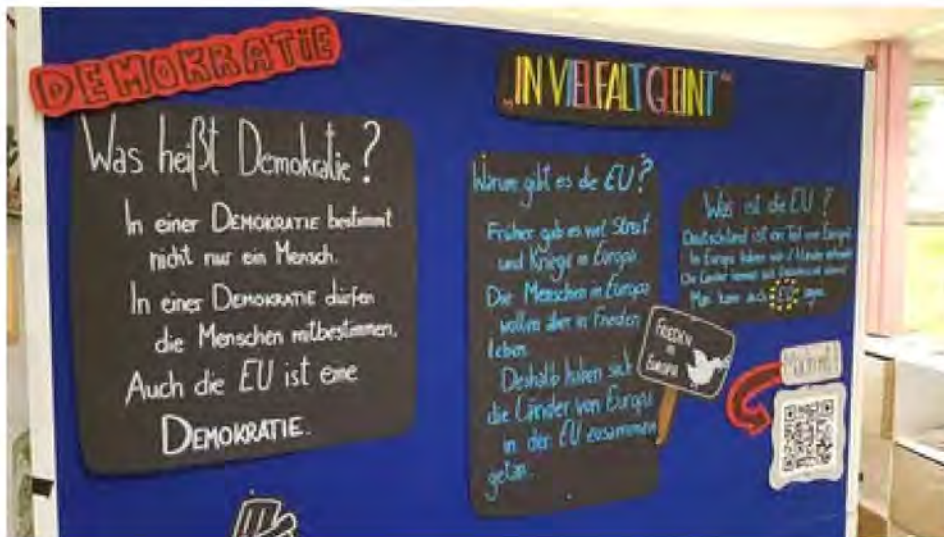 DEMOKRATIE
Was heißt Demokratie?
In einer DEMOKRATIE bestimmt
nicht nur ein Mensch.
In einer DEMOKRATIE dürfen
die Menschen mitbestimmen.
Auch die EU ist eine
DEMOKRATIE.
„IN VIELFALT GEEINT“
Warum gibt es die EU?
Früher gab es viel Streit
und Kriege in Europa.
Die Menschen in Europa
wollen aber in Frieden
leben.
Deshalb haben sich
die Länder von Europa
in der EU zusammen
getan.
FRIEDEN
in
EUROPA
Was ist die EU?
Deutschland ist ein Teil von Europa.
In Europa haben
Die Länder
Man kann auch EU sagen.